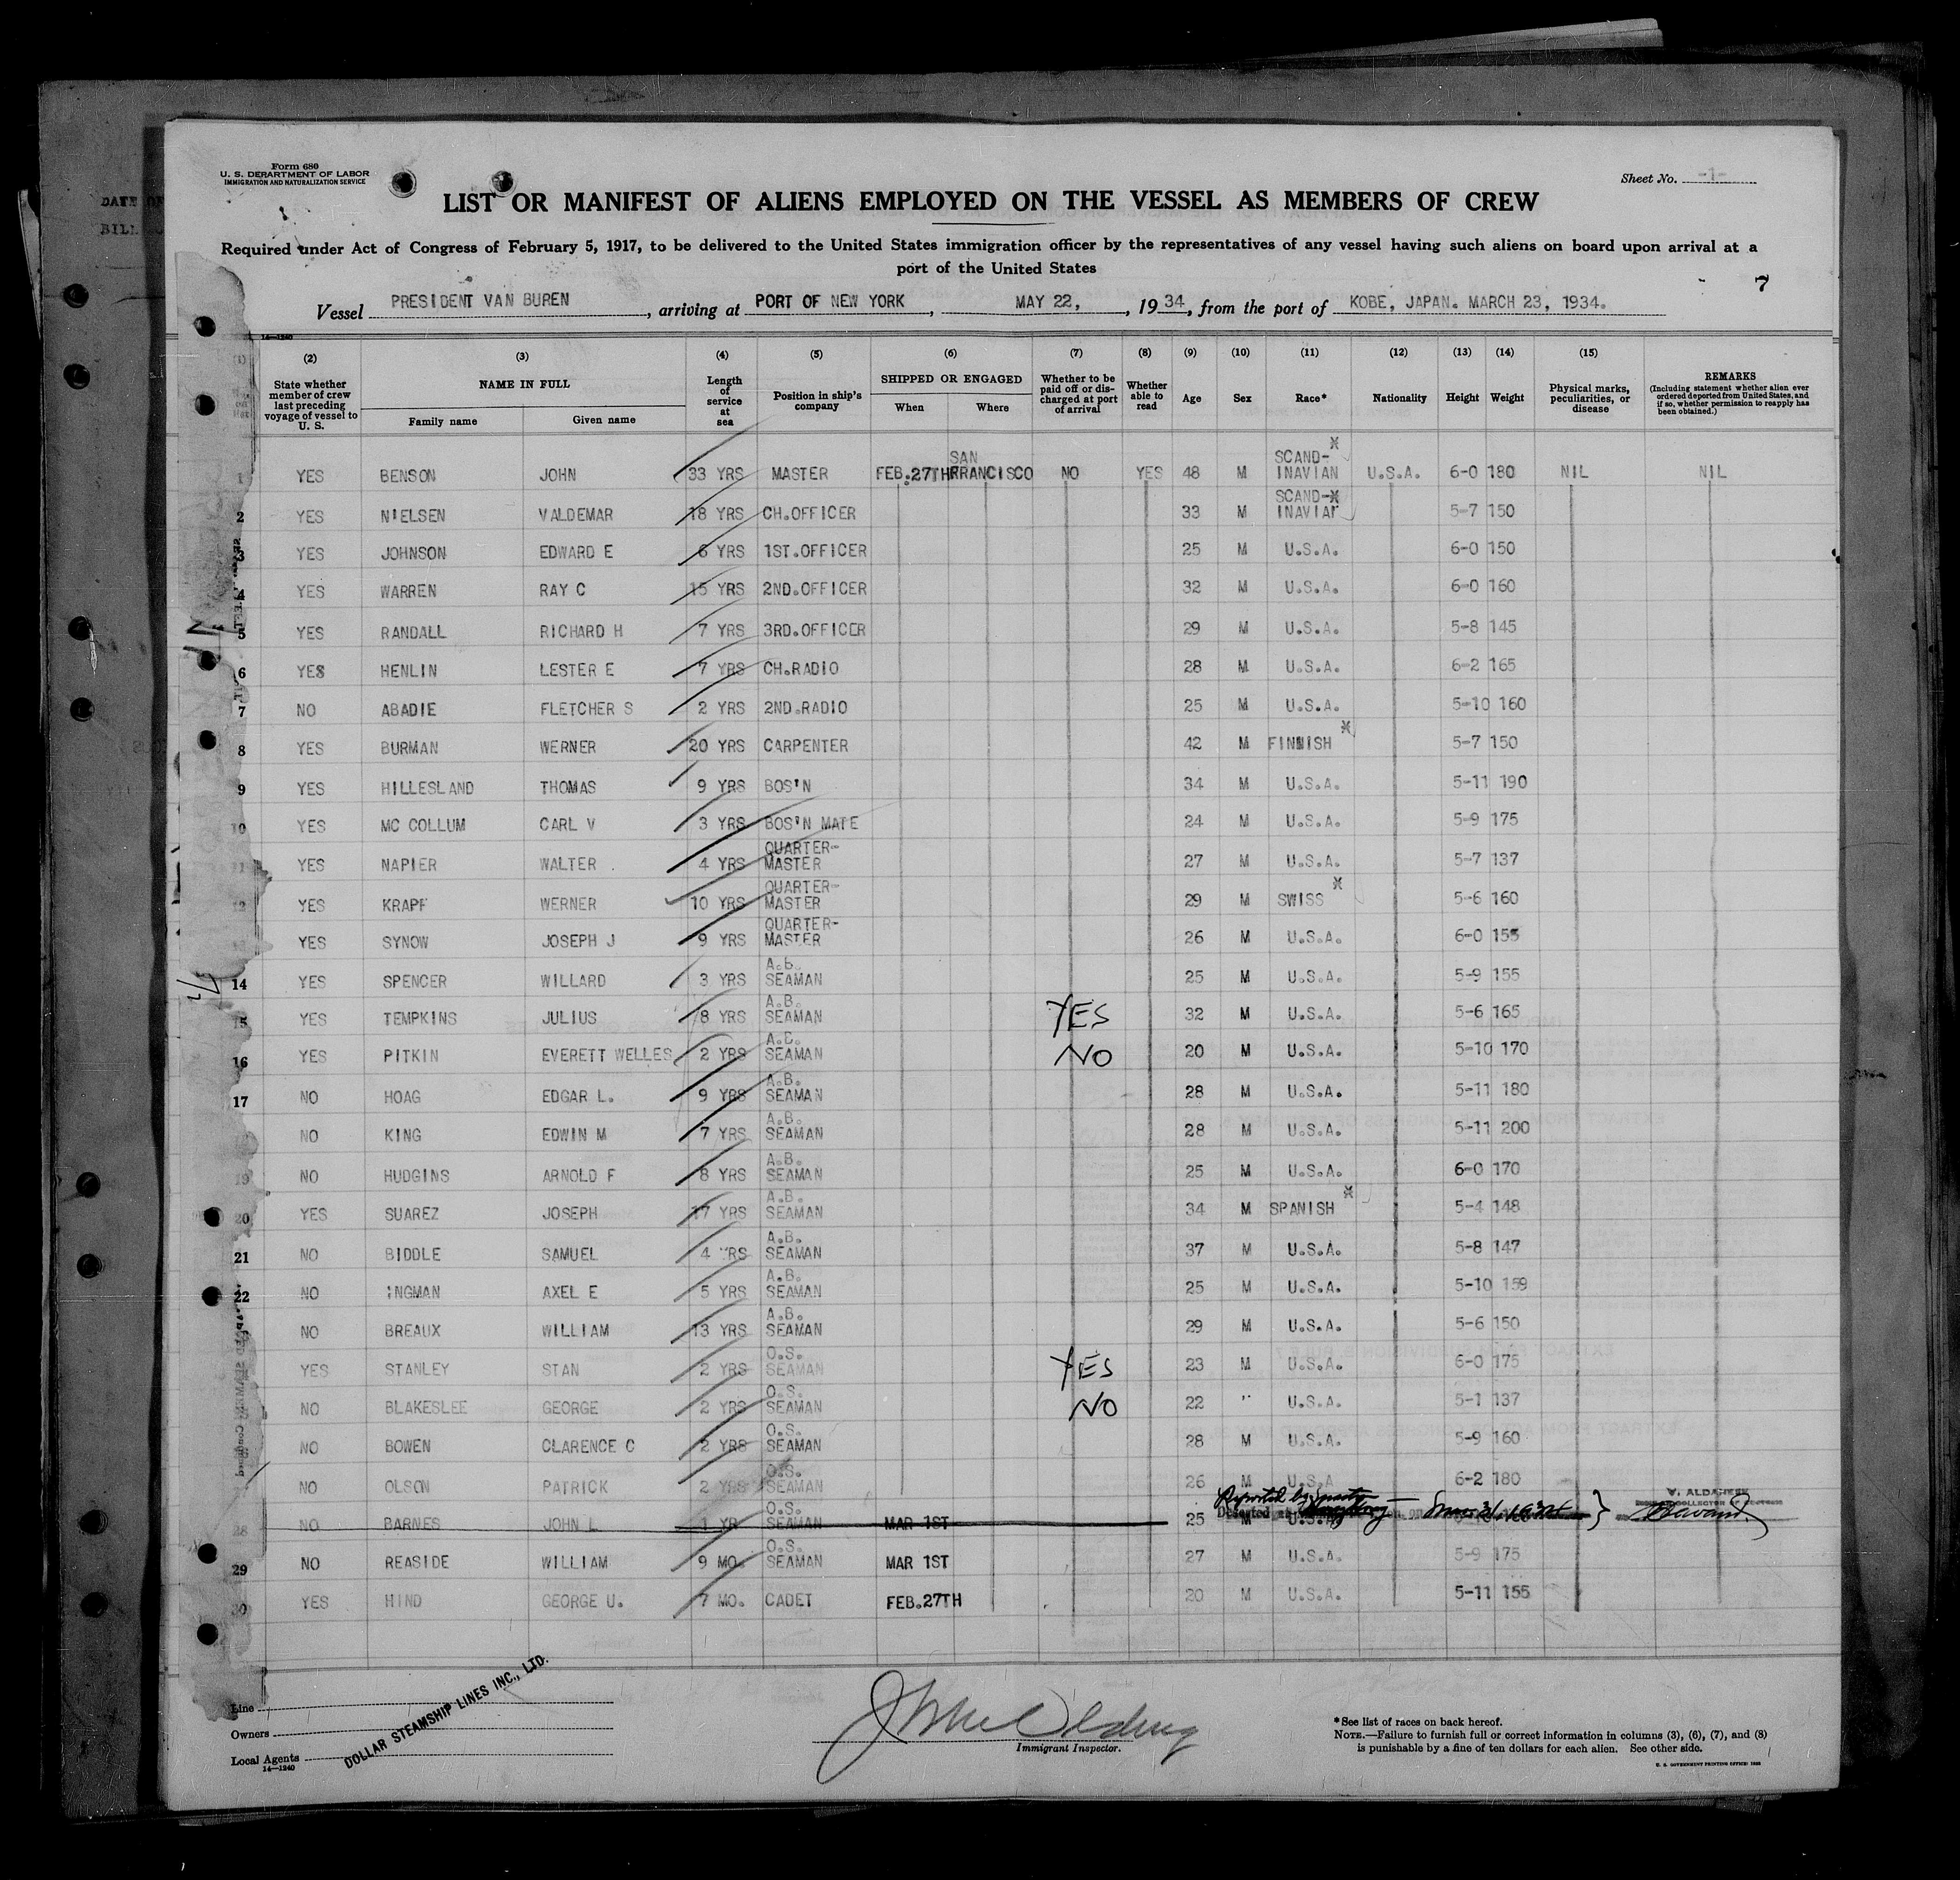 Form 680
U. S. DEPARTMENT OF LABOR
IMMIGRATION AND NATURALIZATION SERVICE
Sheet No. -1-
LIST OR MANIFEST OF ALIENS EMPLOYED ON THE VESSEL AS MEMBERS OF CREW
Required under Act of Congress of February 5, 1917, to be delivered to the United States immigration officer by the representatives of any vessel having such aliens on board upon arrival at a
port of the United States
7
Vessel PRESIDENT VAN BUREN, arriving at PORT OF NEW YORK, MAY 22, , 1934, from the port of KOBE, JAPAN. MARCH 23, 1934.
14—1240
(1) (2) (3) (4) (5) (6) (7) (8) (9) (10) (11) (12) (13) (14) (15)
State whether member of crew last preceding voyage of vessel to U. S. NAME IN FULL Family name Given name Length of service at sea Position in ship's company SHIPPED OR ENGAGED When Where Whether to be paid off or discharged at port of arrival Whether able to read Age Sex Race* Nationality Height Weight Physical marks, peculiarities, or disease REMARKS (Including statement whether alien ever ordered deported from United States, and if so, whether permission to reapply has been obtained.)
1 YES BENSON JOHN 33 YRS MASTER FEB.27TH SAN FRANCISCO NO YES 48 M SCAND-INAVIAN U.S.A. 6-0 180 NIL NIL
2 YES NIELSEN VALDEMAR 18 YRS CH.OFFICER 33 M SCAND-INAVIAN 5-7 150
3 YES JOHNSON EDWARD E 6 YRS 1ST.OFFICER 25 M U.S.A. 6-0 150
4 YES WARREN RAY C 15 YRS 2ND.OFFICER 32 M U.S.A. 6-0 160
5 YES RANDALL RICHARD H 7 YRS 3RD.OFFICER 29 M U.S.A. 5-8 145
6 YES HENLIN LESTER E 7 YRS CH.RADIO 28 M U.S.A. 6-2 165
7 NO ABADIE FLETCHER S 2 YRS 2ND.RADIO 25 M U.S.A. 5-10 160
8 YES BURMAN WERNER 20 YRS CARPENTER 42 M FINNISH 5-7 150
9 YES HILLESLAND THOMAS 9 YRS BOS'N 34 M U.S.A. 5-11 190
10 YES MC COLLUM CARL V 3 YRS BOS'N MATE 24 M U.S.A. 5-9 175
11 YES NAPIER WALTER 4 YRS QUARTER-MASTER 27 M U.S.A. 5-7 137
12 YES KRAPF WERNER 10 YRS QUARTER-MASTER 29 M SWISS 5-6 160
13 YES SYNOW JOSEPH J 9 YRS QUARTER-MASTER 26 M U.S.A. 6-0 155
14 YES SPENCER WILLARD 3 YRS A.B. SEAMAN 25 M U.S.A. 5-9 155
15 YES TEMPKINS JULIUS 8 YRS A.B. SEAMAN YES 32 M U.S.A. 5-6 165
16 YES PITKIN EVERETT WELLES 2 YRS A.B. SEAMAN NO 20 M U.S.A. 5-10 170
17 NO HOAG EDGAR L. 9 YRS A.B. SEAMAN 28 M U.S.A. 5-11 180
NO KING EDWIN M 7 YRS A.B. SEAMAN 28 M U.S.A. 5-11 200
19 NO HUDGINS ARNOLD F 8 YRS A.B. SEAMAN 25 M U.S.A. 6-0 170
20 YES SUAREZ JOSEPH 17 YRS A.B. SEAMAN 34 M SPANISH 5-4 148
21 NO BIDDLE SAMUEL 4 YRS A.B. SEAMAN 37 M U.S.A. 5-8 147
22 NO INGMAN AXEL E 5 YRS A.B. SEAMAN 25 M U.S.A. 5-10 159
NO BREAUX WILLIAM 13 YRS A.B. SEAMAN 29 M U.S.A. 5-6 150
YES STANLEY STAN 2 YRS O.S. SEAMAN YES 23 M U.S.A. 6-0 175
NO BLAKESLEE GEORGE 2 YRS O.S. SEAMAN NO 22 " U.S.A. 5-1 137
NO BOWEN CLARENCE C 2 YRS O.S. SEAMAN 28 M U.S.A. 5-9 160
NO OLSON PATRICK 2 YRS O.S. SEAMAN 26 M U.S.A 6-2 180
28 NO BARNES JOHN L 1 YR O.S. SEAMAN MAR 1ST 25 M U.S.A. Reported by Deserted at on
29 NO REASIDE WILLIAM 9 MO. O.S. SEAMAN MAR 1ST 27 M U.S.A. 5-9 175
30 YES HIND GEORGE U. 7 MO. CADET FEB.27TH 20 M U.S.A. 5-11 155
Line
Owners
Local Agents
DOLLAR STEAMSHIP LINES INC., LTD.
14—1240
Immigrant Inspector.
*See list of races on back hereof.
NOTE.—Failure to furnish full or correct information in columns (3), (6), (7), and (8)
is punishable by a fine of ten dollars for each alien. See other side.